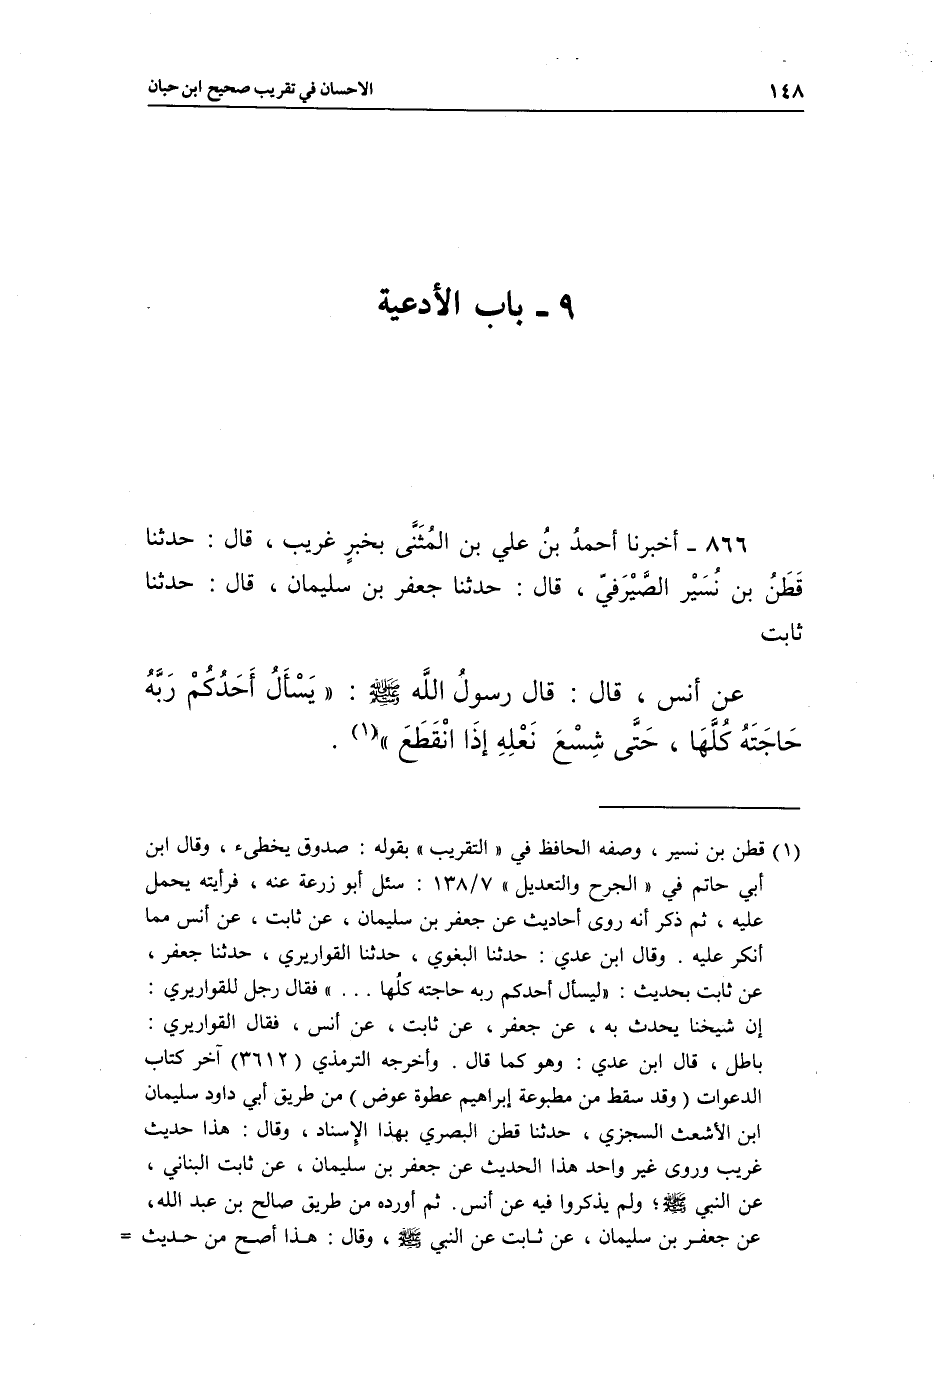 ١٤٨ الاحسان في تقريب صحيح ابن حبان
٩ ـ باب الأدعية
٨٦٦ ـ أخبرنا أحمدُ بنُ علي بن المُثَنَّى بخبرٍ غريب ، قال : حدثنا
قَطَنُ بن نُسَيْر الصَّيْرَفيّ ، قال : حدثنا جعفر بن سليمان ، قال : حدثنا
ثابت
عن أنس ، قال : قال رسولُ اللَّه ﷺ : « يَسْأَلُ أَحَدُكُمْ رَبَّهُ
حَاجَتَهُ كُلَّهَا ، حَتَّى شِسْعَ نَعْلِهِ إِذَا انْقَطَعَ »(١) .
(١) قطن بن نسير ، وصفه الحافظ في « التقريب » بقوله : صدوق يخطىء ، وقال ابن
أبي حاتم في « الجرح والتعديل » ١٣٨/٧ : سئل أبو زرعة عنه ، فرأيته يحمل
عليه ، ثم ذكر أنه روى أحاديث عن جعفر بن سليمان ، عن ثابت ، عن أنس مما
أنكر عليه . وقال ابن عدي : حدثنا البغوي ، حدثنا القواريري ، حدثنا جعفر ،
عن ثابت بحديث : «ليسأل أحدكم ربه حاجته كلُها . . . » فقال رجل للقواريري :
إن شيخنا يحدث به ، عن جعفر ، عن ثابت ، عن أنس ، فقال القواريري :
باطل ، قال ابن عدي : وهو كما قال . وأخرجه الترمذي (٣٦١٢) آخر كتاب
الدعوات ( وقد سقط من مطبوعة إبراهيم عطوة عوض ) من طريق أبي داود سليمان
ابن الأشعث السجزي ، حدثنا قطن البصري بهذا الإسناد ، وقال : هذا حديث
غريب وروى غير واحد هذا الحديث عن جعفر بن سليمان ، عن ثابت البناني ،
عن النبي ﷺ؛ ولم يذكروا فيه عن أنس. ثم أورده من طريق صالح بن عبد الله،
عن جعفـر بن سليمان ، عن ثـابت عن النبي ﷺ ، وقال : هـذا أصـح من حـديث =